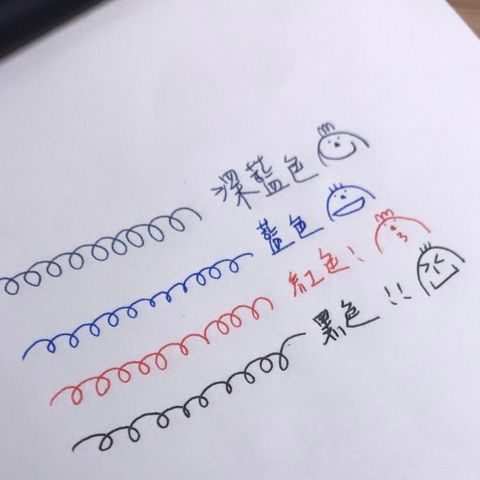 深藍色
藍色
紅色!
黑色!!